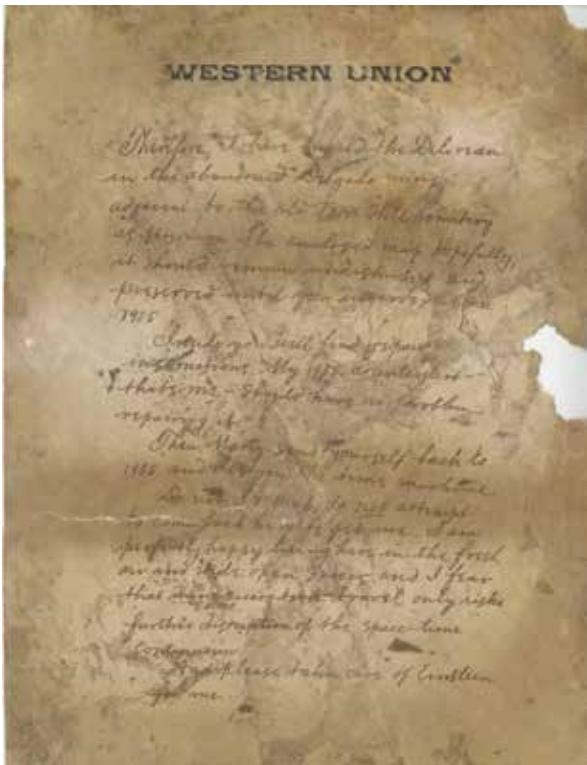 WESTERN UNION
Therefore, I have buried the Delorean
in the abandoned Delgado mine,
adjacent to the old
as shown on the enclosed map. Hopefully,
it should remain undisturbed and
preserved until you uncover it in
1955.
Inside you will find repair
instructions. My 1955 counterpart -
that's me - should have no problem
repairing it.
Then Marty send yourself back to
1985 and destroy the time machine.
Do not, I repeat, do not attempt
to come back here to get me. I am
perfectly happy living here in the fresh
air and wide open spaces and I fear
that unnecessary time travel only risks
further disruption of the space-time
continuum.
And please take care of Einstein
for me.